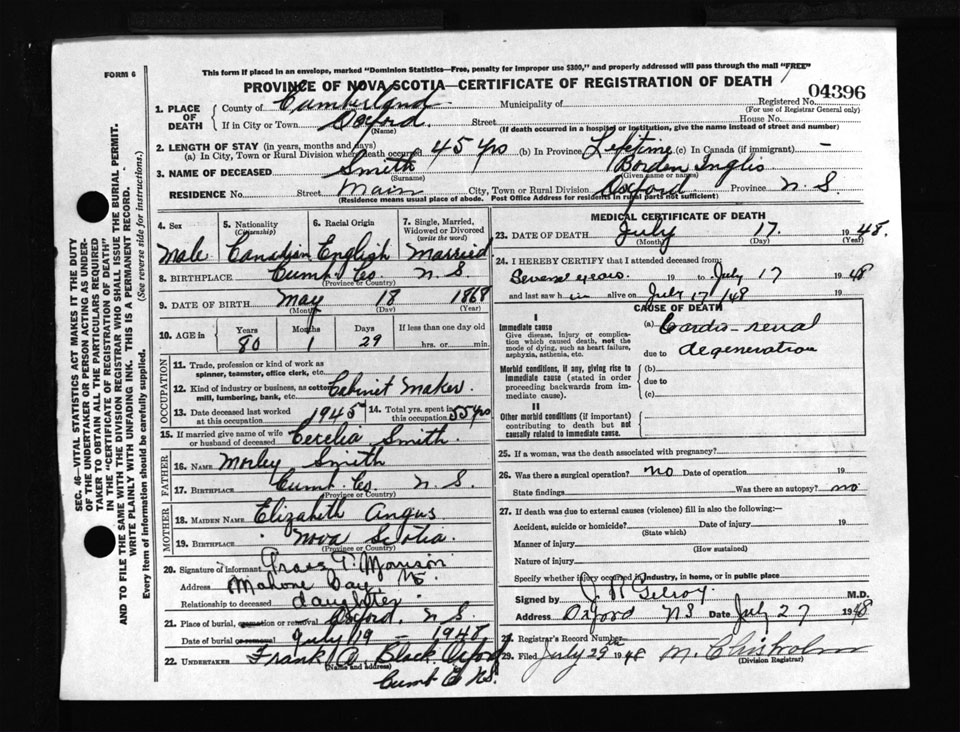 FORM 6
This form if placed in an envelope, marked "Dominion Statistics—Free, penalty for improper use $300," and properly addressed will pass through the mail "FREE"
PROVINCE OF NOVA SCOTIA—CERTIFICATE OF REGISTRATION OF DEATH
04396
1. PLACE OF DEATH County of Cumberland Municipality of Registered No.
(For use of Registrar General only)
If in City or Town Oxford. Street House No.
(Name) (If death occurred in a hospital or institution, give the name instead of street and number)
2. LENGTH OF STAY (in years, months and days)
(a) In City, Town or Rural Division where death occurred 45 yrs (b) In Province Lifetime (c) In Canada (if immigrant) —
3. NAME OF DECEASED Smith Borden Inglis
(Surname) (Given name or names)
RESIDENCE No. Street Main City, Town or Rural Division Oxford Province N. S.
(Residence means usual place of abode. Post Office Address for residents in rural parts not sufficient)
4. Sex 5. Nationality (Citizenship) 6. Racial Origin 7. Single, Married, Widowed or Divorced (write the word)
Male Canadian English Married
8. BIRTHPLACE Cumb. Co. N. S.
(Province or Country)
9. DATE OF BIRTH May 18 1868
(Month) (Day) (Year)
10. AGE in Years Months Days If less than one day old
80 1 29 hrs. or min.
OCCUPATION
11. Trade, profession or kind of work as spinner, teamster, office clerk, etc.
12. Kind of industry or business, as cotton mill, lumbering, bank, etc. Cabinet Maker.
13. Date deceased last worked at this occupation 1945 14. Total yrs. spent in this occupation 55 yrs
15. If married give name of wife or husband of deceased Cecelia Smith.
FATHER
16. NAME Morley Smith
17. BIRTHPLACE Cumb. Co. N. S.
(Province or Country)
MOTHER
18. MAIDEN NAME Elizabeth Angus
19. BIRTHPLACE Nova Scotia.
(Province or Country)
20. Signature of informant T. Morrison
Address Mahone Bay NS
Relationship to deceased daughter
21. Place of burial, cremation or removal Oxford. N. S.
Date of burial or removal July 19 – 1948
22. UNDERTAKER Frank A Black. Oxford
(Name and address)
Cumb Co N.S.
MEDICAL CERTIFICATE OF DEATH
23. DATE OF DEATH July 17. 1948.
(Month) (Day) (Year)
24. I HEREBY CERTIFY that I attended deceased from:
Several years. 19 to July 17 1948
and last saw him alive on July 17/48 19
CAUSE OF DEATH
I
Immediate cause
Give disease, injury or complication which caused death, not the mode of dying, such as heart failure, asphyxia, asthenia, etc.
(a) Cardio-renal
due to degeneration
Morbid conditions, if any, giving rise to immediate cause (stated in order proceeding backwards from immediate cause).
(b)
due to
(c)
II
Other morbid conditions (if important) contributing to death but not causally related to immediate cause.
25. If a woman, was the death associated with pregnancy?
26. Was there a surgical operation? no Date of operation 19
State findings Was there an autopsy? no
27. If death was due to external causes (violence) fill in also the following:—
Accident, suicide or homicide? Date of injury 19
(State which)
Manner of injury
(How sustained)
Nature of injury
Specify whether injury occurred in industry, in home, or in public place
Signed by Gilroy. M.D.
Address Oxford NS Date July 27 1948
28. Registrar's Record Number
29. Filed July 29th 1948 M. Chisholm
(Division Registrar)
SEC. 46—VITAL STATISTICS ACT MAKES IT THE DUTY
OF THE UNDERTAKER OR PERSON ACTING AS UNDERTAKER
TO OBTAIN ALL THE PARTICULARS REQUIRED
IN THE "CERTIFICATE OF REGISTRATION OF DEATH"
AND TO FILE THE SAME WITH THE DIVISION REGISTRAR WHO SHALL ISSUE THE BURIAL PERMIT.
WRITE PLAINLY WITH UNFADING INK. THIS IS A PERMANENT RECORD.
Every item of information should be carefully supplied. (See reverse side for instructions.)